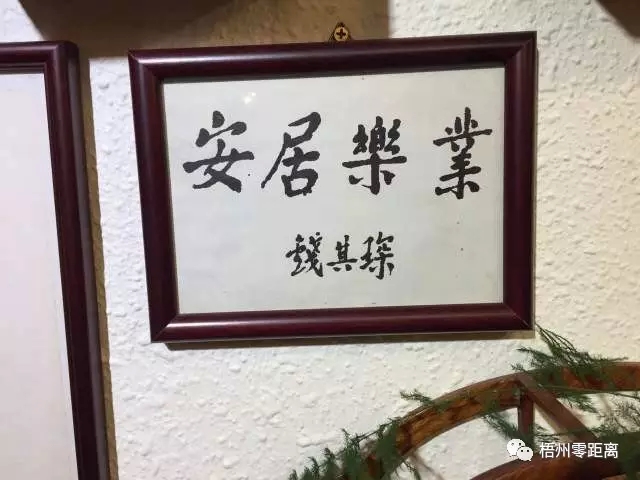 安居樂業
錢其琛
梧州零距离